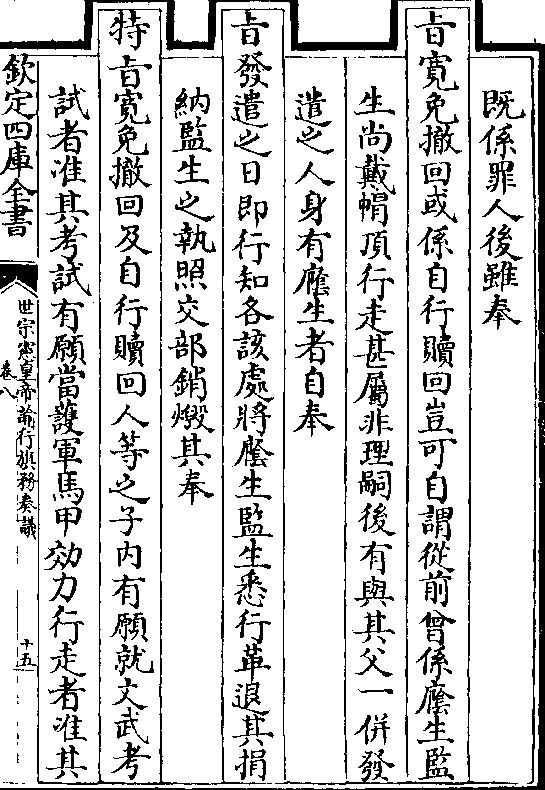 既係罪人後雖奉
旨寛免撤回或係自行贖回豈可自謂從前曾係廕生監
生尚戴帽頂行走甚屬非理嗣後有與其父一併發
遣之人身有廕生者自奉
旨發遣之日即行知各該處將廕生監生悉行革退其捐
納監生之執照交部銷燬其奉
特旨寛免撤回及自行贖回人等之子内有願就文武考
試者准其考試有願當護軍馬甲効力行走者准其
欽定四庫全書
世宗憲皇帝諭行旗務奏議
卷八
十五